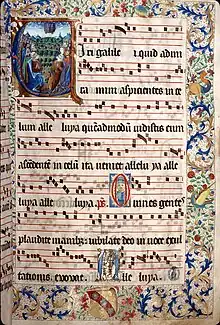 Viri galilei quid admi
ramini aspicientes in ce
lum alleluya quēadmodū vidistis eum
ascēdentē in celū ita veniet alleluya alle
luya alleluya. ps. Omnes gentes
plaudite manibꝫ iubilate deo in voce exul
tationis. euovae. Alleluya.